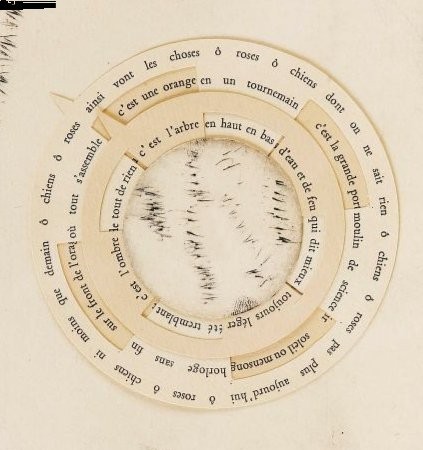 ainsi vont les choses ô roses ô chiens dont on ne sait rien ô chiens ô roses pas plus aujourd'hui ô roses ô chiens ni moins que demain ô chiens ô roses
c'est une orange en un tournemain c'est la grande port moulin de science ir soleil ou mensong horloge sans fin sur le front de l'ora où tout s'assemble
c'est l'arbre en haut en bas d'eau et de feu qui dit mieux toujours léger été tremblant c'est l'ombre le tout de rien